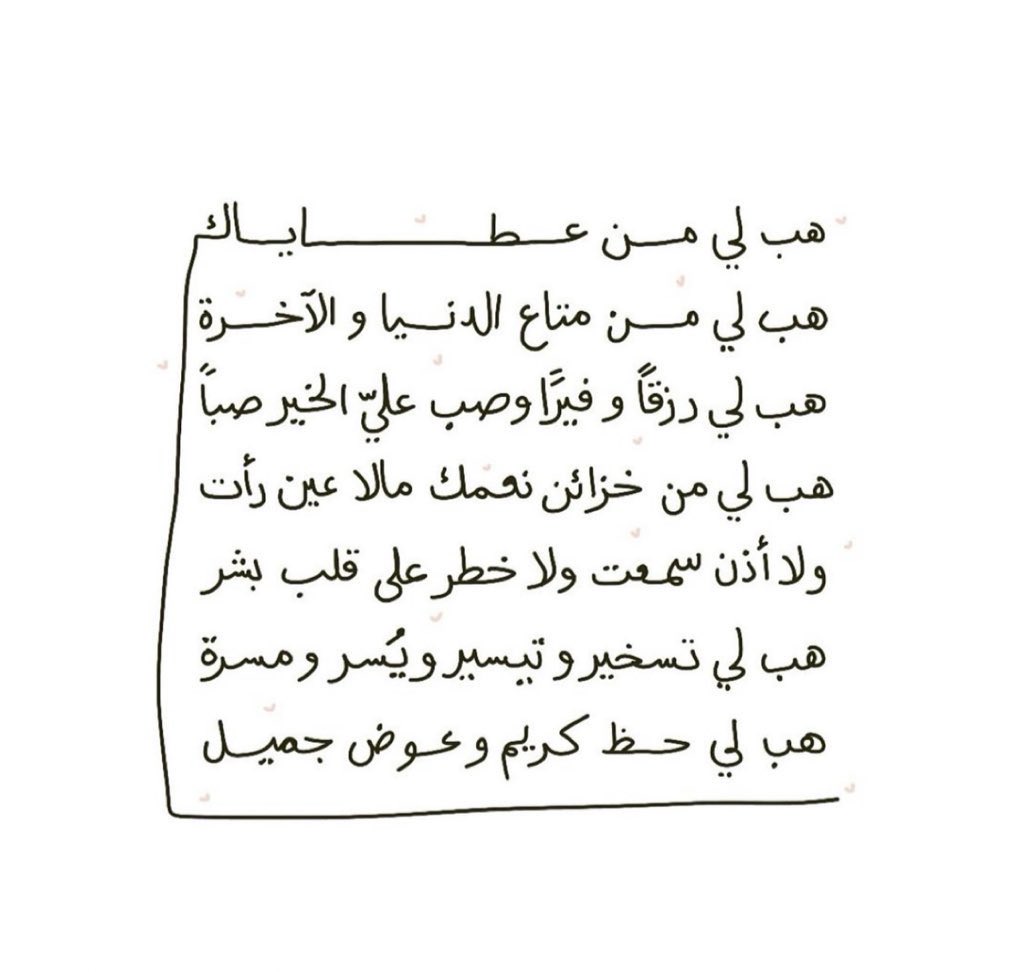 هب لي من عطاياك
هب لي من متاع الدنيا و الآخرة
هب لي رزقاً و فيرًا وصب عليّ الخير صباً
هب لي من خزائن نعمك مالا عين رأت
ولا أذن سمعت ولا خطر على قلب بشر
هب لي تسخير و تيسير و يُسر و مسرة
هب لي حظ كريم و عوض جميل